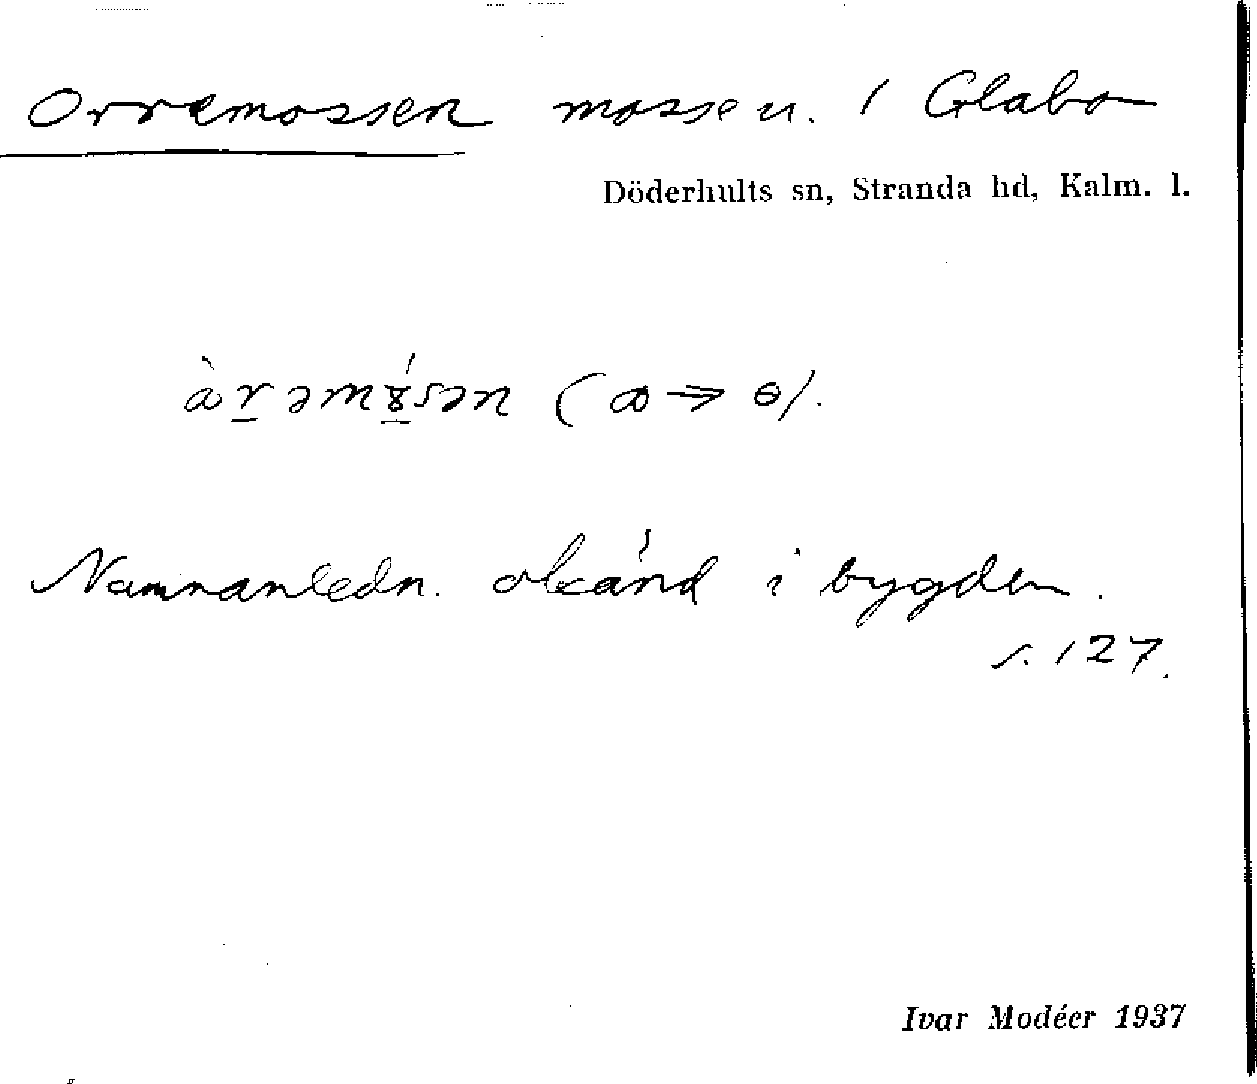 Orremossen mosse u. / Glabo
Döderhults sn, Stranda hd, Kalm. l.
Namnanledn. okänd i bygden.
s. 127.
Ivar Modéer 1937